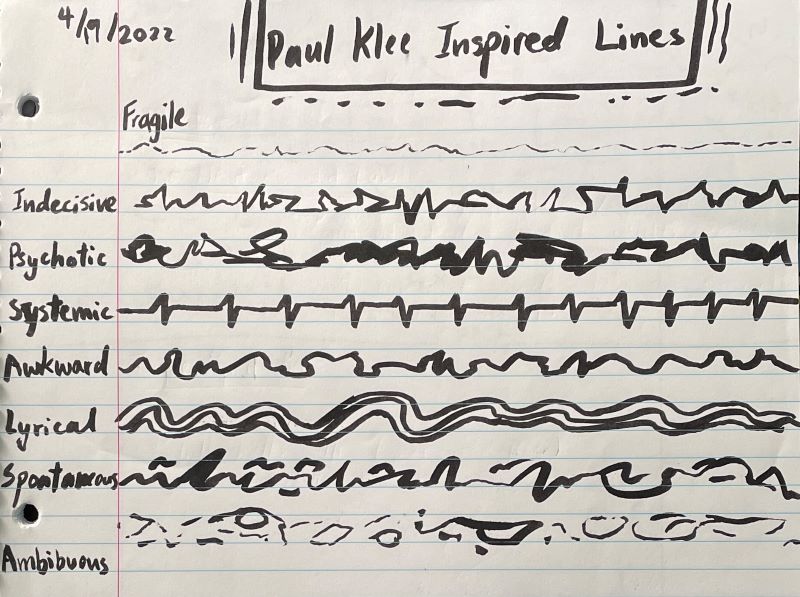 4/19/2022
Paul Klee Inspired Lines
Fragile
Indecisive
Psychotic
Systemic
Awkward
Lyrical
Spontaneous
Ambibuous